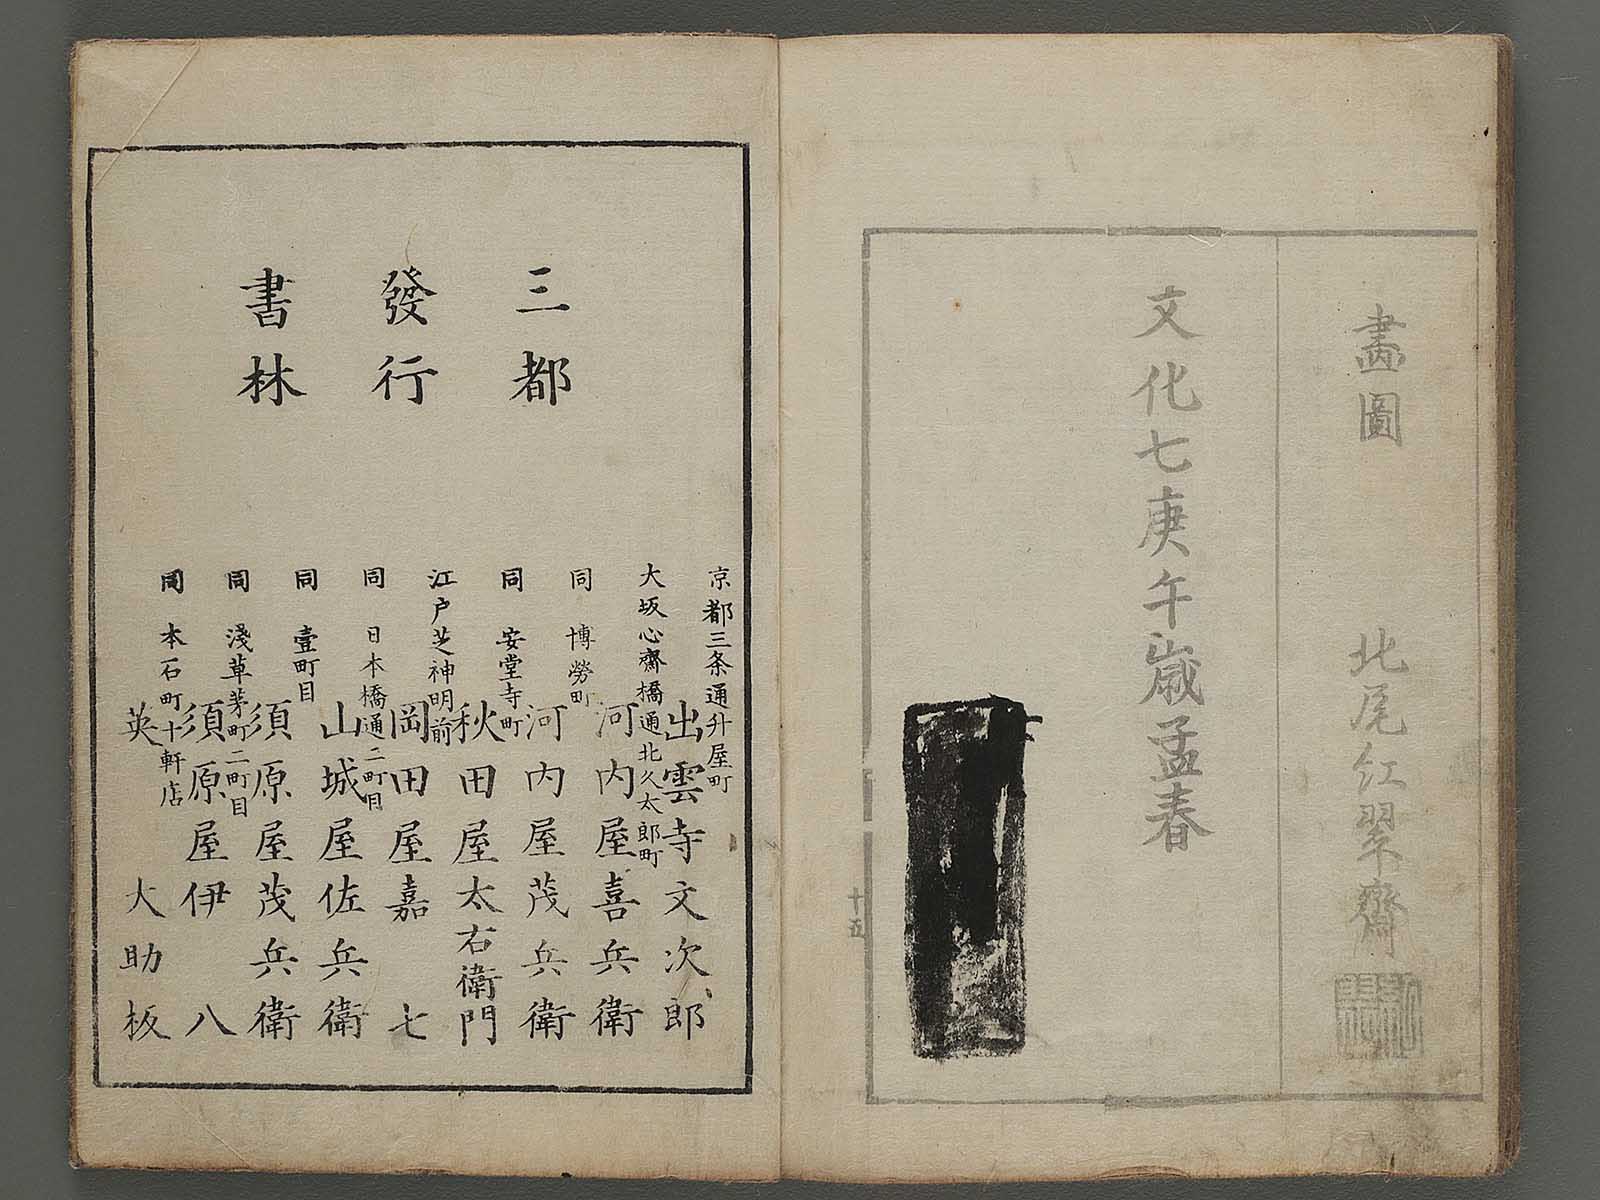 畵圖　北尾紅翠齋
文化七庚午歳孟春
十五
三都
發行
書林
京都三条通升屋町　出雲寺文次郎
大坂心齋橋通北久太郎町　河内屋喜兵衛
同　博勞町　河内屋茂兵衛
同　安堂寺町　秋田屋太右衛門
江戸芝神明前　岡田屋嘉七
同　日本橋通二町目　山城屋佐兵衛
同　壹町目　須原屋茂兵衛
同　淺草茅町二町目　須原屋伊八
同　本石町十軒店　英大助板